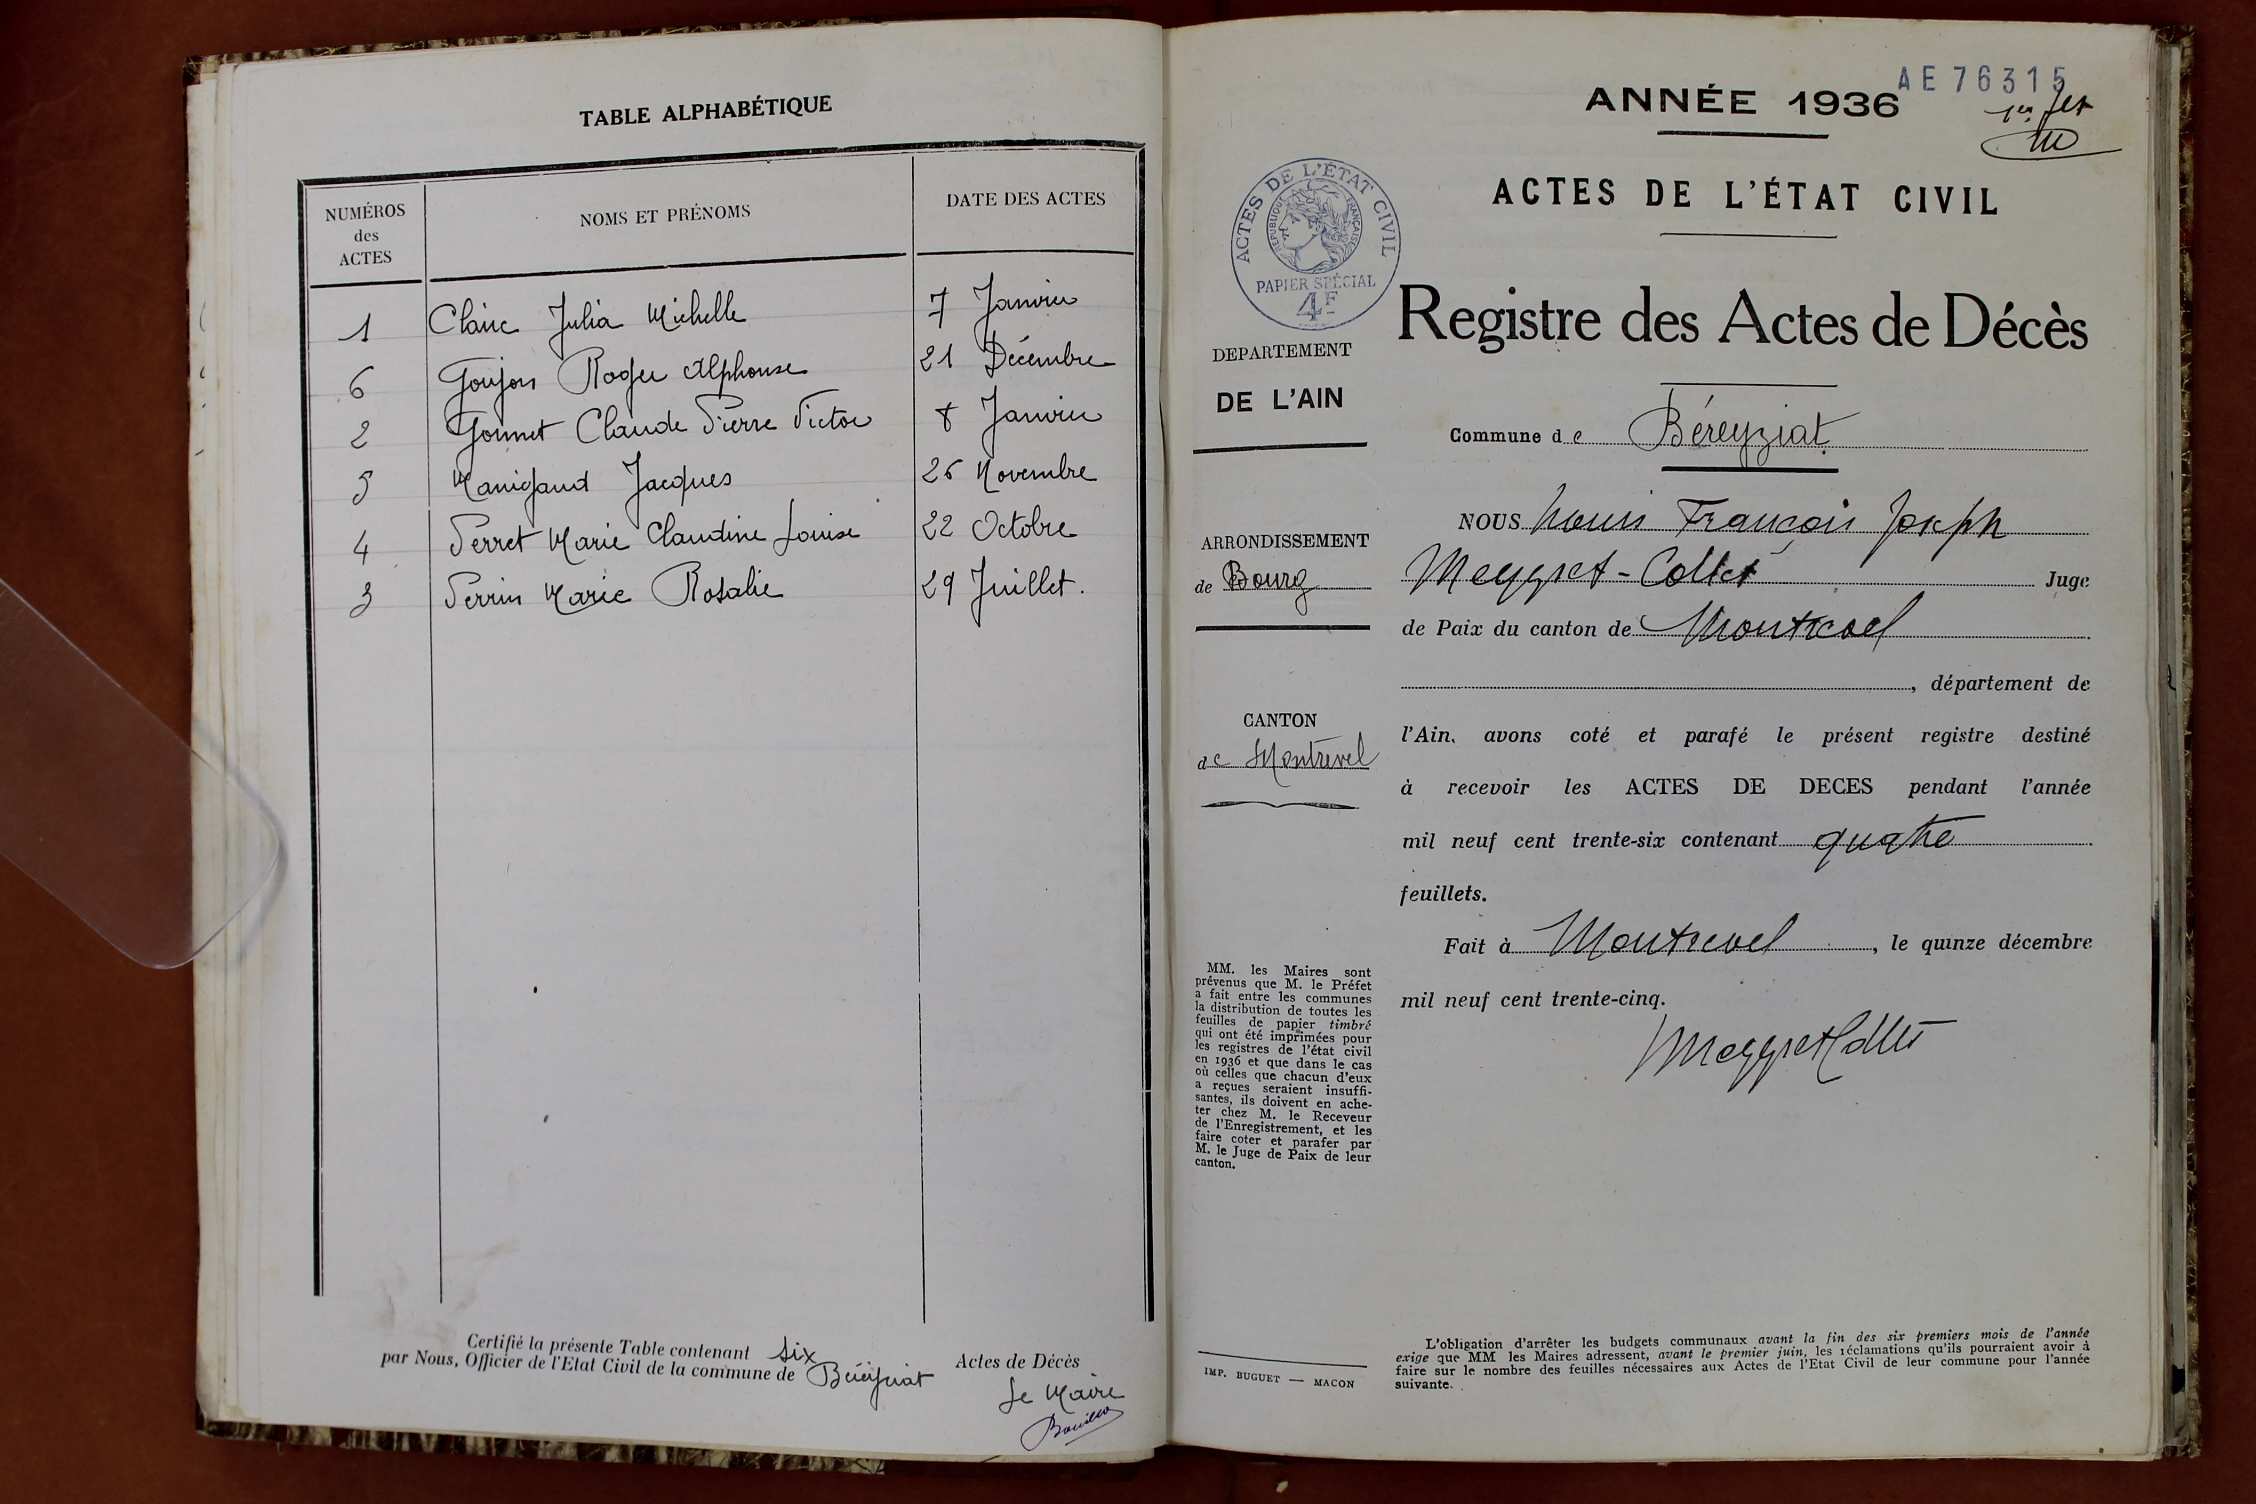 TABLE ALPHABÉTIQUE
NUMÉROS
des
ACTES
NOMS ET PRÉNOMS
DATE DES ACTES
1 Claire Julia Michelle 7 Janvier
6 Goujon Roger Alphonse 21 Décembre
2 Gonnet Claude Pierre Victor 8 Janvier
5 Manigand Jacques 26 Novembre
4 Perret Marie Claudine Louise 22 Octobre
3 Perrin Marie Rosalie 29 Juillet.
Certifié la présente Table contenant six Actes de Décès
par Nous, Officier de l'Etat Civil de la commune de Béréyziat
Le Maire
AE 76315
ANNÉE 1936
ACTES DE L'ÉTAT CIVIL
ACTES DE L'ÉTAT CIVIL
RÉPUBLIQUE FRANÇAISE
PAPIER SPÉCIAL
4F
Registre des Actes de Décès
DEPARTEMENT
DE L'AIN
Commune de Béreyziat
ARRONDISSEMENT
de Bourg
CANTON
de Montrevel
NOUS Louis François Joseph
Meygret-Collet Juge
de Paix du canton de Montrevel
, département de
l'Ain, avons coté et parafé le présent registre destiné
à recevoir les ACTES DE DECES pendant l'année
mil neuf cent trente-six contenant quatre
feuillets.
Fait à Montrevel, le quinze décembre
mil neuf cent trente-cinq.
MeygretCollet
MM. les Maires sont
prévenus que M. le Préfet
a fait entre les communes
la distribution de toutes les
feuilles de papier timbré
qui ont été imprimées pour
les registres de l'état civil
en 1936 et que dans le cas
où celles que chacun d'eux
a reçues seraient insuffi-
santes, ils doivent en ache-
ter chez M. le Receveur
de l'Enregistrement, et les
faire coter et parafer par
M. le Juge de Paix de leur
canton.
IMP. BUGUET — MACON
L'obligation d'arrêter les budgets communaux avant la fin des six premiers mois de l'année
exige que MM les Maires adressent, avant le premier juin, les réclamations qu'ils pourraient avoir à
faire sur le nombre des feuilles nécessaires aux Actes de l'Etat Civil de leur commune pour l'année
suivante.